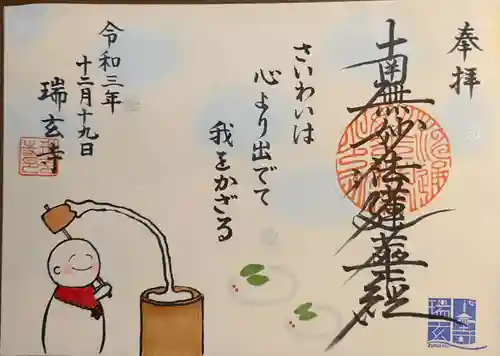 奉拝
南無妙法蓮華経
さいわいは
心より出でて
我をかざる
令和三年
十二月十九日
瑞玄寺
瑞玄寺